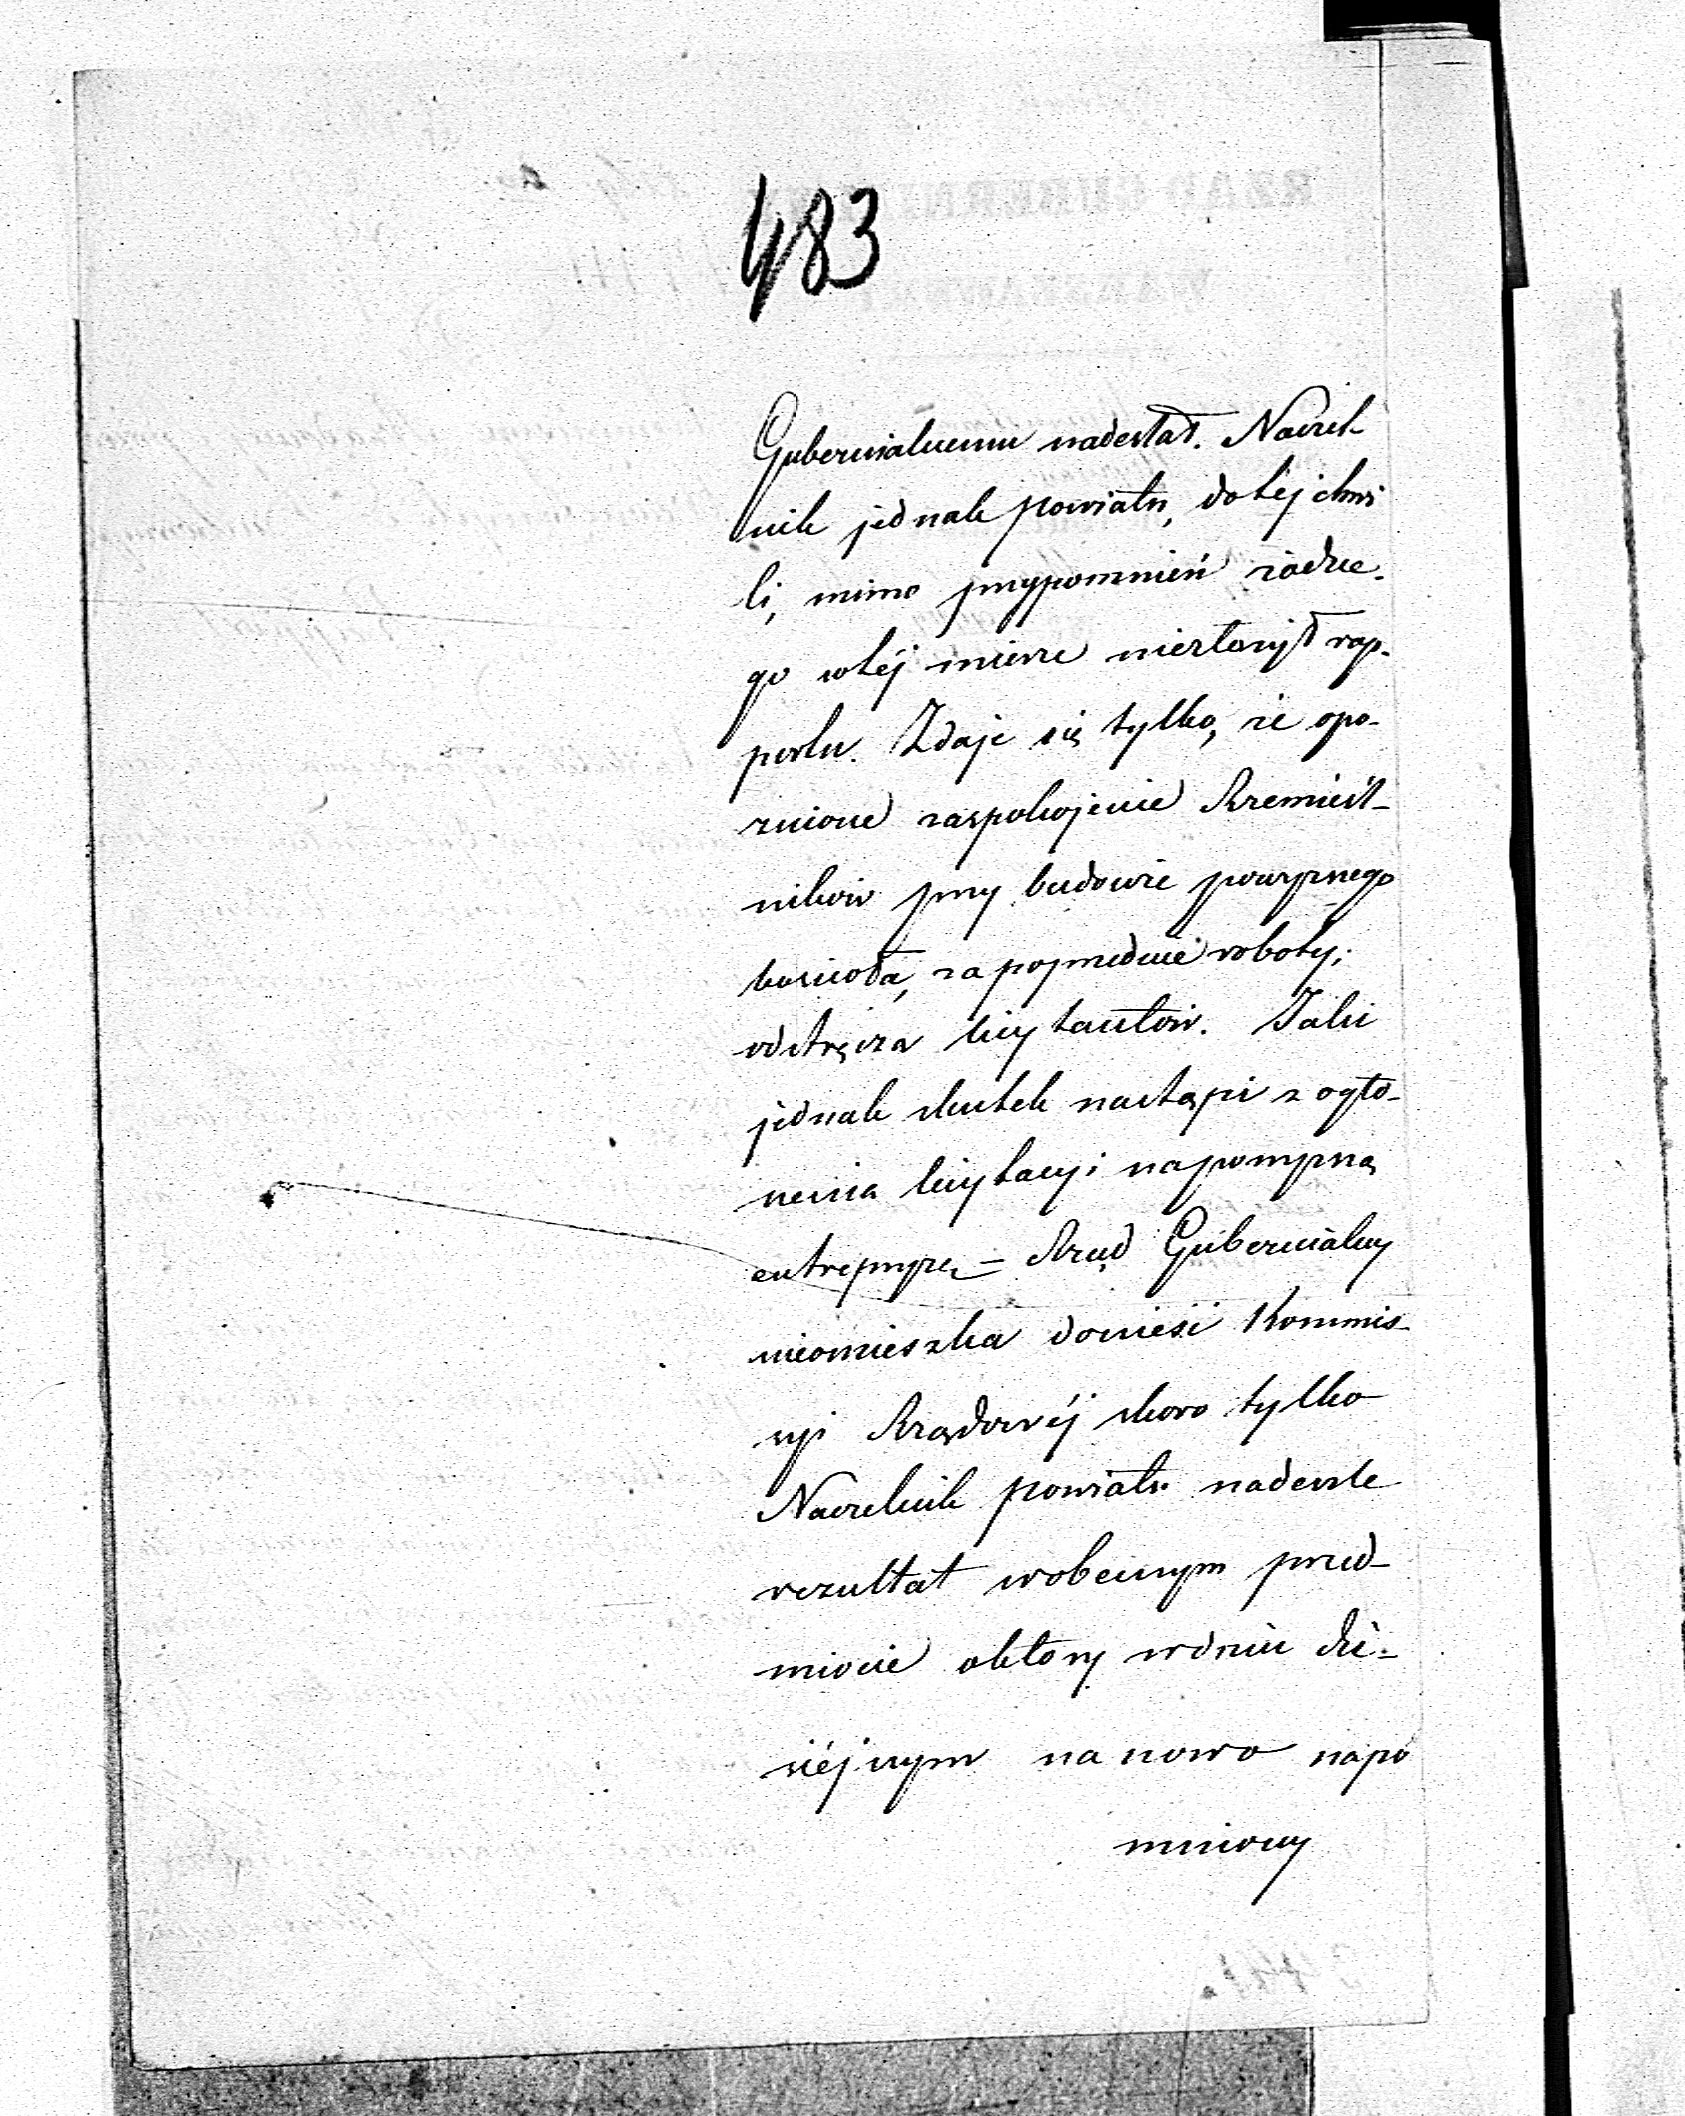 483
Gubernialnemu nadesłał. Naczel-
nik jednak powiatu, do tej chwi
li, mimo przypomnień żadne-
go w téj mierze niezłożył rap-
portu. Zdaje się tylko, że opó-
źnione zaspokojenie Rzemieśl-
ników przy budowie powyższego
kościoła, za poprzednie roboty,
odstręcza licytantów. Jaki
jednak skutek nastąpi z ogło-
szenia licytacyi na powyższą
entrepryzę – Rząd Gubernialny
nieomieszka donieść Kommis-
syi Rządowéj skoro tylko
Naczelnik powiatu nadeszle
rezultat w obecnym przed-
miocie o który w dniu dzi-
siéjszym na nowo napo
mniony